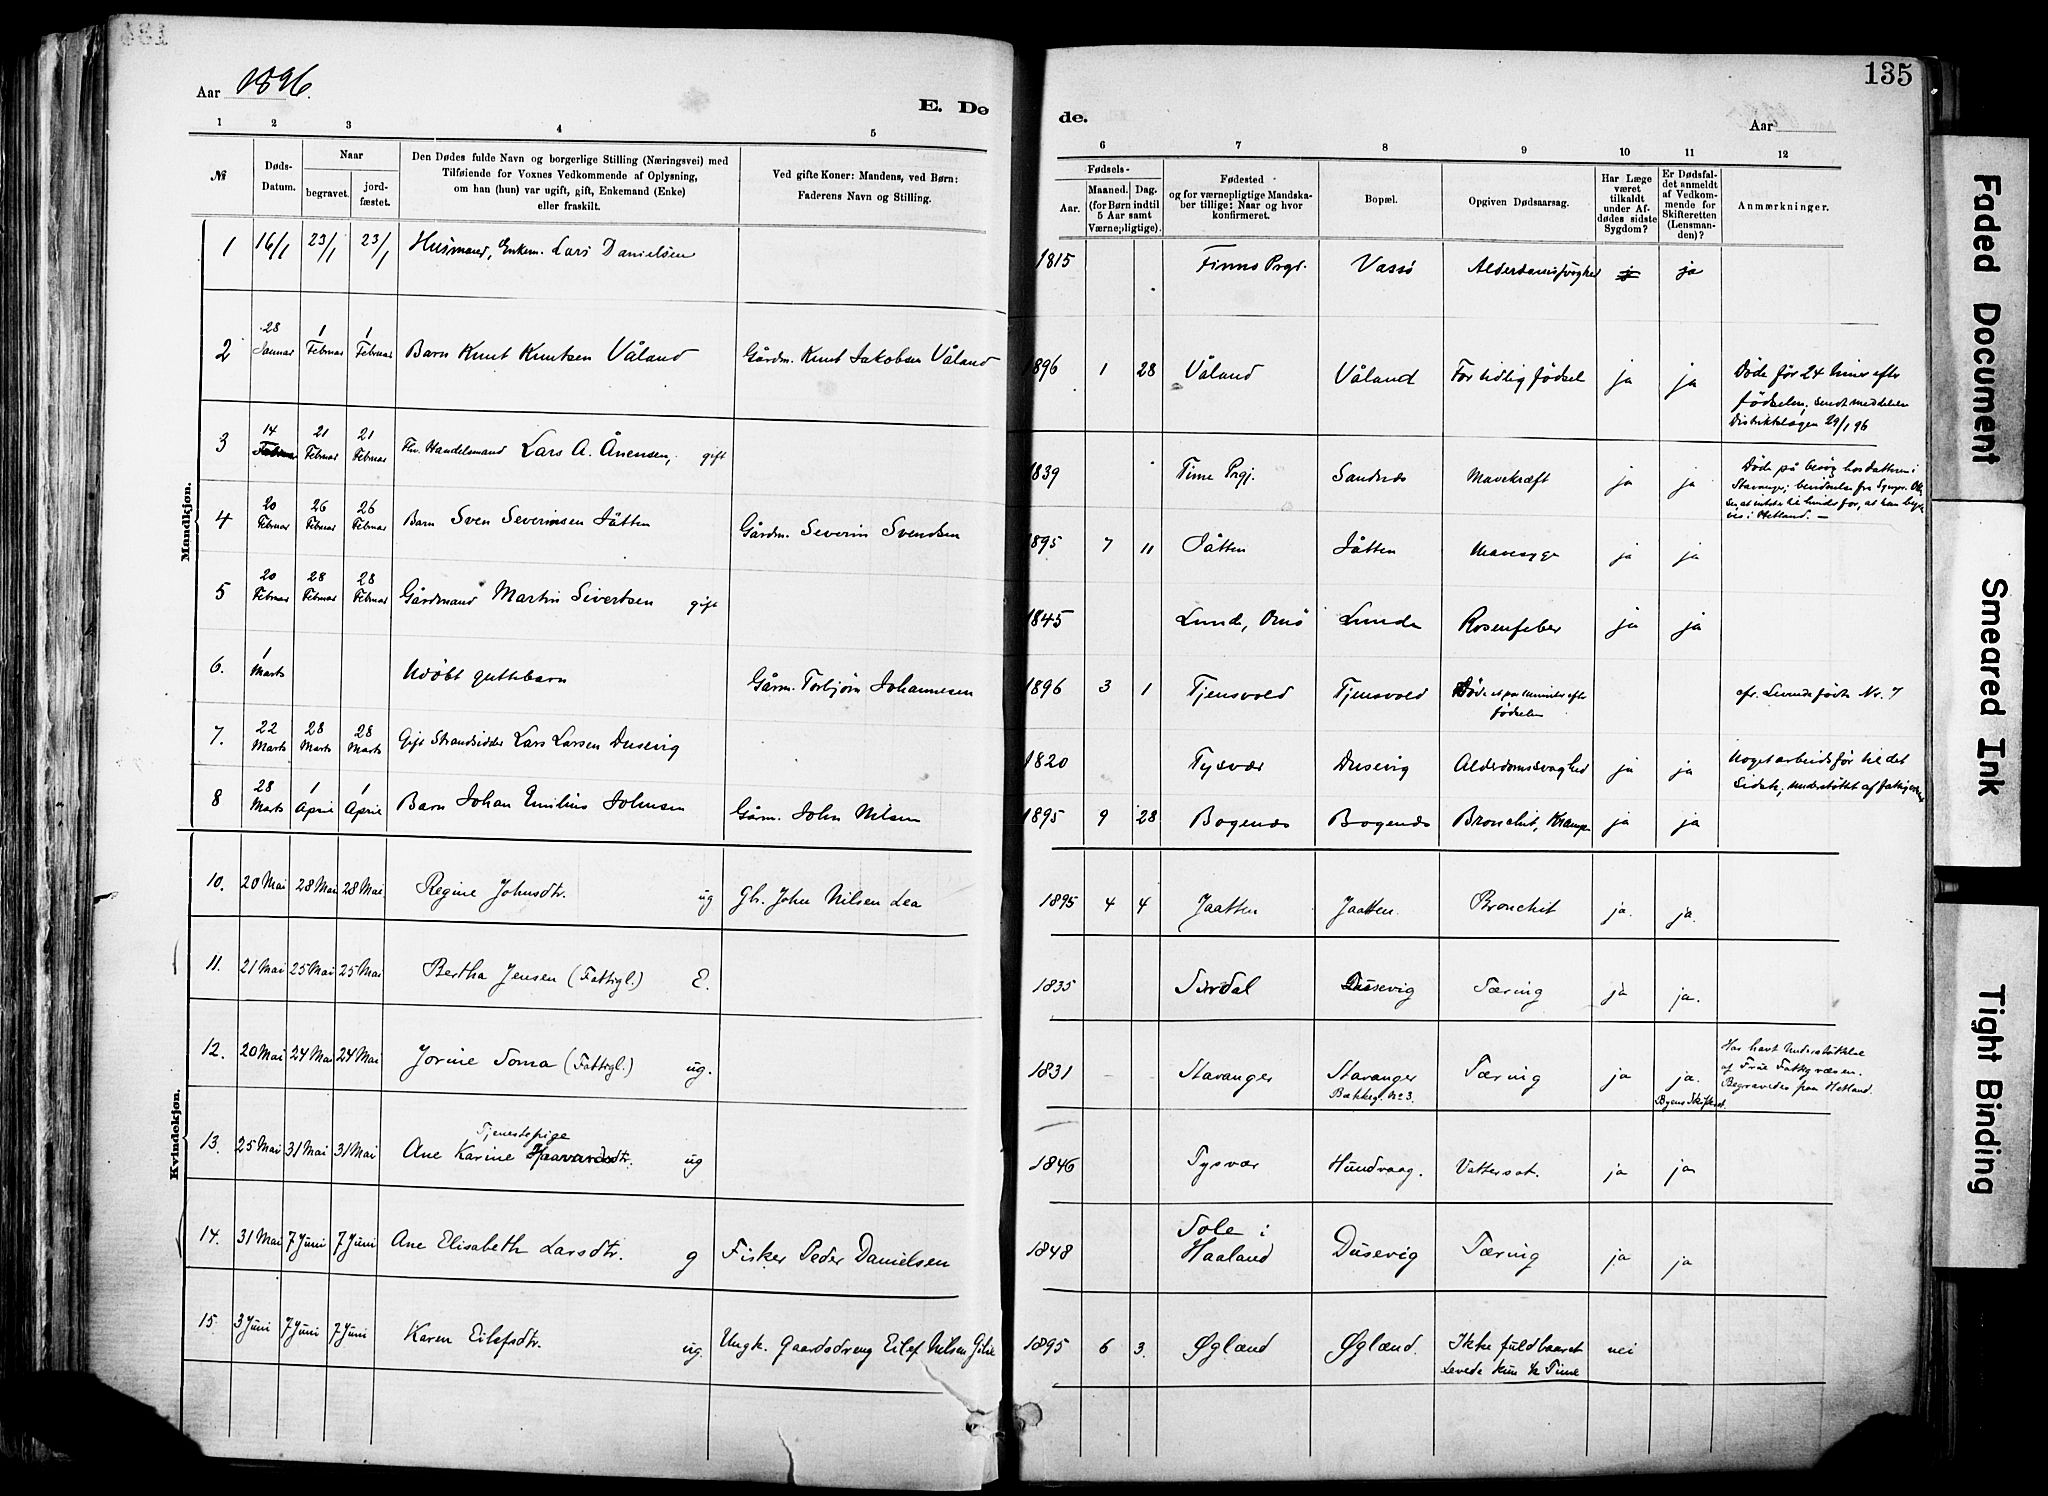 Aar 1896.
E. Dø
de.
Aar
135
1 2 3 4 5
6 7 8 9 10 11 12
№
Døds-
Datum.
Naar
begravet.
jord-
fæstet.
Den Dødes fulde Navn og borgerlige Stilling (Næringsvei) med
Tilføiende for Voxnes Vedkommende af Oplysning,
om han (hun) var ugift, gift, Enkemand (Enke)
eller fraskilt.
Ved gifte Koner: Mandens, ved Børn:
Faderens Navn og Stilling.
Fødsels-
Aar.
Maaned. Dag.
(for Børn indtil
5 Aar samt
Værnepligtige).
Fødested
og for værnepligtige Mandska-
ber tillige: Naar og hvor
konfirmeret.
Bopæl.
Opgiven Dødsaarsag.
Har Læge
været
tilkaldt
under Af-
dødes sidste
Sygdom?
Er Dødsfal-
det anmeldt
af Vedkom-
mende for
Skifteretten
(Lensman-
den)?
Anmærkninger.
Mandkjøn.
1 16/1 23/1 23/1 Husmand, Enkem. Lars Danielsen 1815 Finnø Prgj. Vassø Alderdomssvaghed ja
2 28 Januar 1 Februar 1 Februar Barn Knut Knutsen Våland Gårdm. Knut Jakobsen Våland 1896 1 28 Våland Våland For tidlig fødsel ja ja Døde før 24 timer efter
fødselen. Sendt meddelelse
Distriktslægen 29/1 96
3 14 Februar 21 Februar 21 Februar Fhv. Handelsmand Lars A. Ånensen, gift 1839 Time Prgj. Sandnæs Mavekræft ja ja Døde på besøg hos datteren i
Stavanger;
4 20 Februar 26 Februar 26 Februar Barn Sven Severinsen Jåtten Gårdm. Severin Svendsen 1895 7 11 Jåtten Jåtten Mavesyge ja ja
5 20 Februar 28 Februar 28 Februar Gårdmand Martin Sivertsen gift 1845 Lunde, Omø Lunde Rosenfeber ja ja
6. 1 Marts Udøbt guttebarn Gårm. Torbjørn Johannesen 1896 3 1 Tjensvold Tjensvold Døde et par minuter efter
fødselen cfr. Levendefødte Nr. 7
7. 22 Marts 28 Marts 28 Marts Gift Strandsidder Lars Larsen Dusevig 1820 Tysvær Dusevig Alderdomssvaghed ja ja Noget arbeidsfør til det
Sidste, understøttet af
8 28 Marts 1 April 1 April Barn Johan Emilius Johnsen Gårm. John Nilsen 1895 9 28 Bogenæs Bogenæs Bronchit, Krampe ja ja
Kvindekjøn.
10. 20 Mai 28 Mai 28 Mai Regine Johnsdtr. ug Gbr. John Nilsen Lea 1895 4 4 Jaatten Jaatten. Bronchit ja. ja.
11. 21 Mai 25 Mai 25 Mai Bertha Jensen (Fattigl.) E. 1835 Sirdal Dusevig Tæring ja ja.
12. 20 Mai 24 Mai 24 Mai Jorine Soma (Fattigl.) ug. 1831 Stavanger Stavanger
Bækkeg. No 3. Tæring ja ja.
Byens Skifteret Har havt Understøttelse
af Frue Fattigvæsen.
Begravedes paa Hetland.
13. 25 Mai 31 Mai 31 Mai Tjenestepige
Ane Karine Haavardsdtr. ug 1846 Tysvær Hundvaag. Vattersot. ja ja
14. 31 Mai 7 Juni 7 Juni Ane Elisabeth Larsdtr. g Fisker Peder Danielsen 1848 Sole i
Haaland Dusevig Tæring ja ja
15. 3 Juni 7 Juni 7 Juni Karen Eilefsdtr. ug. Ungk. Gaardsdreng Eilef Nilsen Gilje 1895 6 3. Øglænd Øglænd. Ikke fuldbaaret
Levede kun ½ Time nei
Faded Document
Smeared Ink
Tight Binding